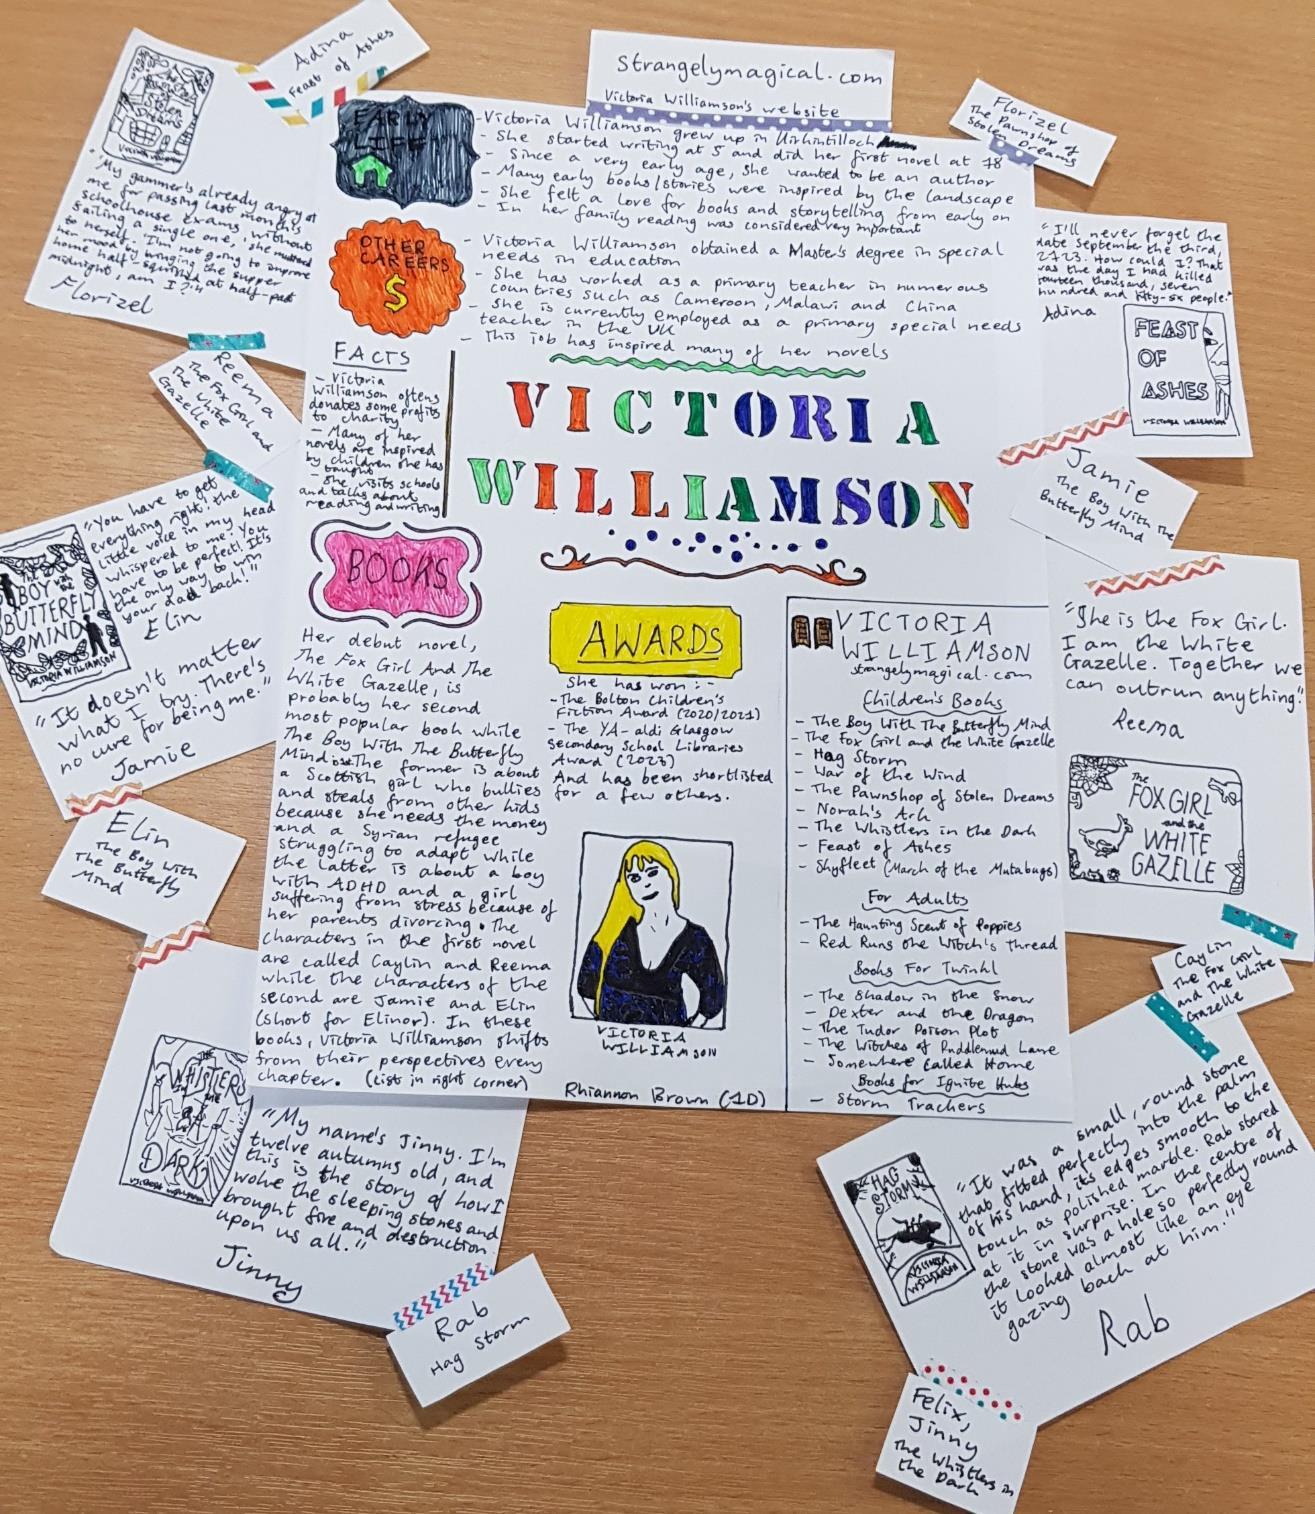 Adina
Feast of Ashes
strangelymagical.com
Victoria Williamson's website
Florizel
The Pawnshop of
Stolen Dreams
The
Pawnshop
of
Stolen
Dreams
"My gammer's already angry at
me for passing last month's
schoolhouse exams without
failing a single one," she muttered
to herself. "I'm not going to improve
her mood by bringing the supper
home half-squined at half-past
midnight, am I?"
Florizel
EARLY
LIFE
- Victoria Williamson grew up in Kirkintilloch
- She started writing at 5 and did her first novel at 18
- Since a very early age, she wanted to be an author
- Many early books/stories were inspired by the landscape
- She felt a love for books and storytelling from early on
- In her family reading was considered very important
OTHER
CAREERS
$
- Victoria Williamson obtained a Master's degree in special
needs in education
- She has worked as a primary teacher in numerous
countries such as Cameroon, Malawi and China
- She is currently employed as a primary special needs
teacher in the UK
- This job has inspired many of her novels
"I'll never forget the
date September the third,
2723. How could I? That
was the day I had killed
fourteen thousand, seven
hundred and fifty-six people."
Adina
FEAST
OF
ASHES
VICTORIA WILLIAMSON
Reema
The Fox Girl and
The White
Gazelle
FACTS
- Victoria
Williamson oftens
donates some profits
to charity
- Many of her
novels are inspired
by children she has
taught
- She visits schools
and talks about
reading and writing
VICTORIA
WILLIAMSON
Jamie
The Boy With The
Butterfly Mind
THE
BOY WITH THE
BUTTERFLY
MIND
VICTORIA WILLIAMSON
"You have to get
everything right! the
little voice in my head
whispered to me. You
have to be perfect! It's
the only way to win
your dad back!"
Elin
"It doesn't matter
what I try. There's
no cure for being me."
Jamie
BOOKS
Her debut novel,
The Fox Girl And The
White Gazelle, is
probably her second
most popular book while
The Boy With The Butterfly
Mind is. The former is about
a Scottish girl who bullies
and steals from other kids
because she needs the money
and a Syrian refugee
struggling to adapt while
the latter is about a boy
with ADHD and a girl
suffering from stress because of
her parents divorcing. The
characters in the first novel
are called Caylin and Reema
while the characters of the
second are Jamie and Elin
(short for Elinor). In these
books, Victoria Williamson shifts
from their perspectives every
chapter. (List in right corner)
AWARDS
She has won :-
- The Bolton Children's
Fiction Award (2020/2021)
- The YA-aldi Glasgow
Secondary School Libraries
Award (2023)
And has been shortlisted
for a few others.
VICTORIA
WILLIAMSON
Rhiannon Brown (1D)
VICTORIA
WILLIAMSON
strangelymagical.com
Children's Books
- The Boy With The Butterfly Mind
- The Fox Girl and the White Gazelle
- Hag Storm
- War of the Wind
- The Pawnshop of Stolen Dreams
- Norah's Ark
- The Whistlers in the Dark
- Feast of Ashes
- Skyfleet (March of the Mutabugs)
For Adults
- The Haunting Scent of Poppies
- Red Runs the Witch's Thread
Books For Twinkl
- The Shadow in the Snow
- Dexter and the Dragon
- The Tudor Poison Plot
- The Witches of Puddlemud Lane
- Somewhere Called Home
Books for Ignite Hubs
- Storm Trackers
"She is the Fox Girl.
I am the White
Gazelle. Together we
can outrun anything."
Reema
THE
FOX GIRL
and the
WHITE
GAZELLE
Elin
The Boy With
The Butterfly
Mind
Caylin
The Fox Girl
and The White
Gazelle
THE
WHISTLERS
IN
THE
DARK
"My name's Jinny. I'm
twelve autumns old, and
this is the story of how I
woke the sleeping stones and
brought fire and destruction
upon us all."
Jinny
Rab
Hag Storm
HAG
STORM
VICTORIA
WILLIAMSON
"It was a small, round stone
that fitted perfectly into the palm
of his hand, its edges smooth to the
touch as polished marble. Rab stared
at it in surprise. In the centre of
the stone was a hole so perfectly round
it looked almost like an eye
gazing back at him."
Rab
Felix,
Jinny
The Whistlers in
the Dark